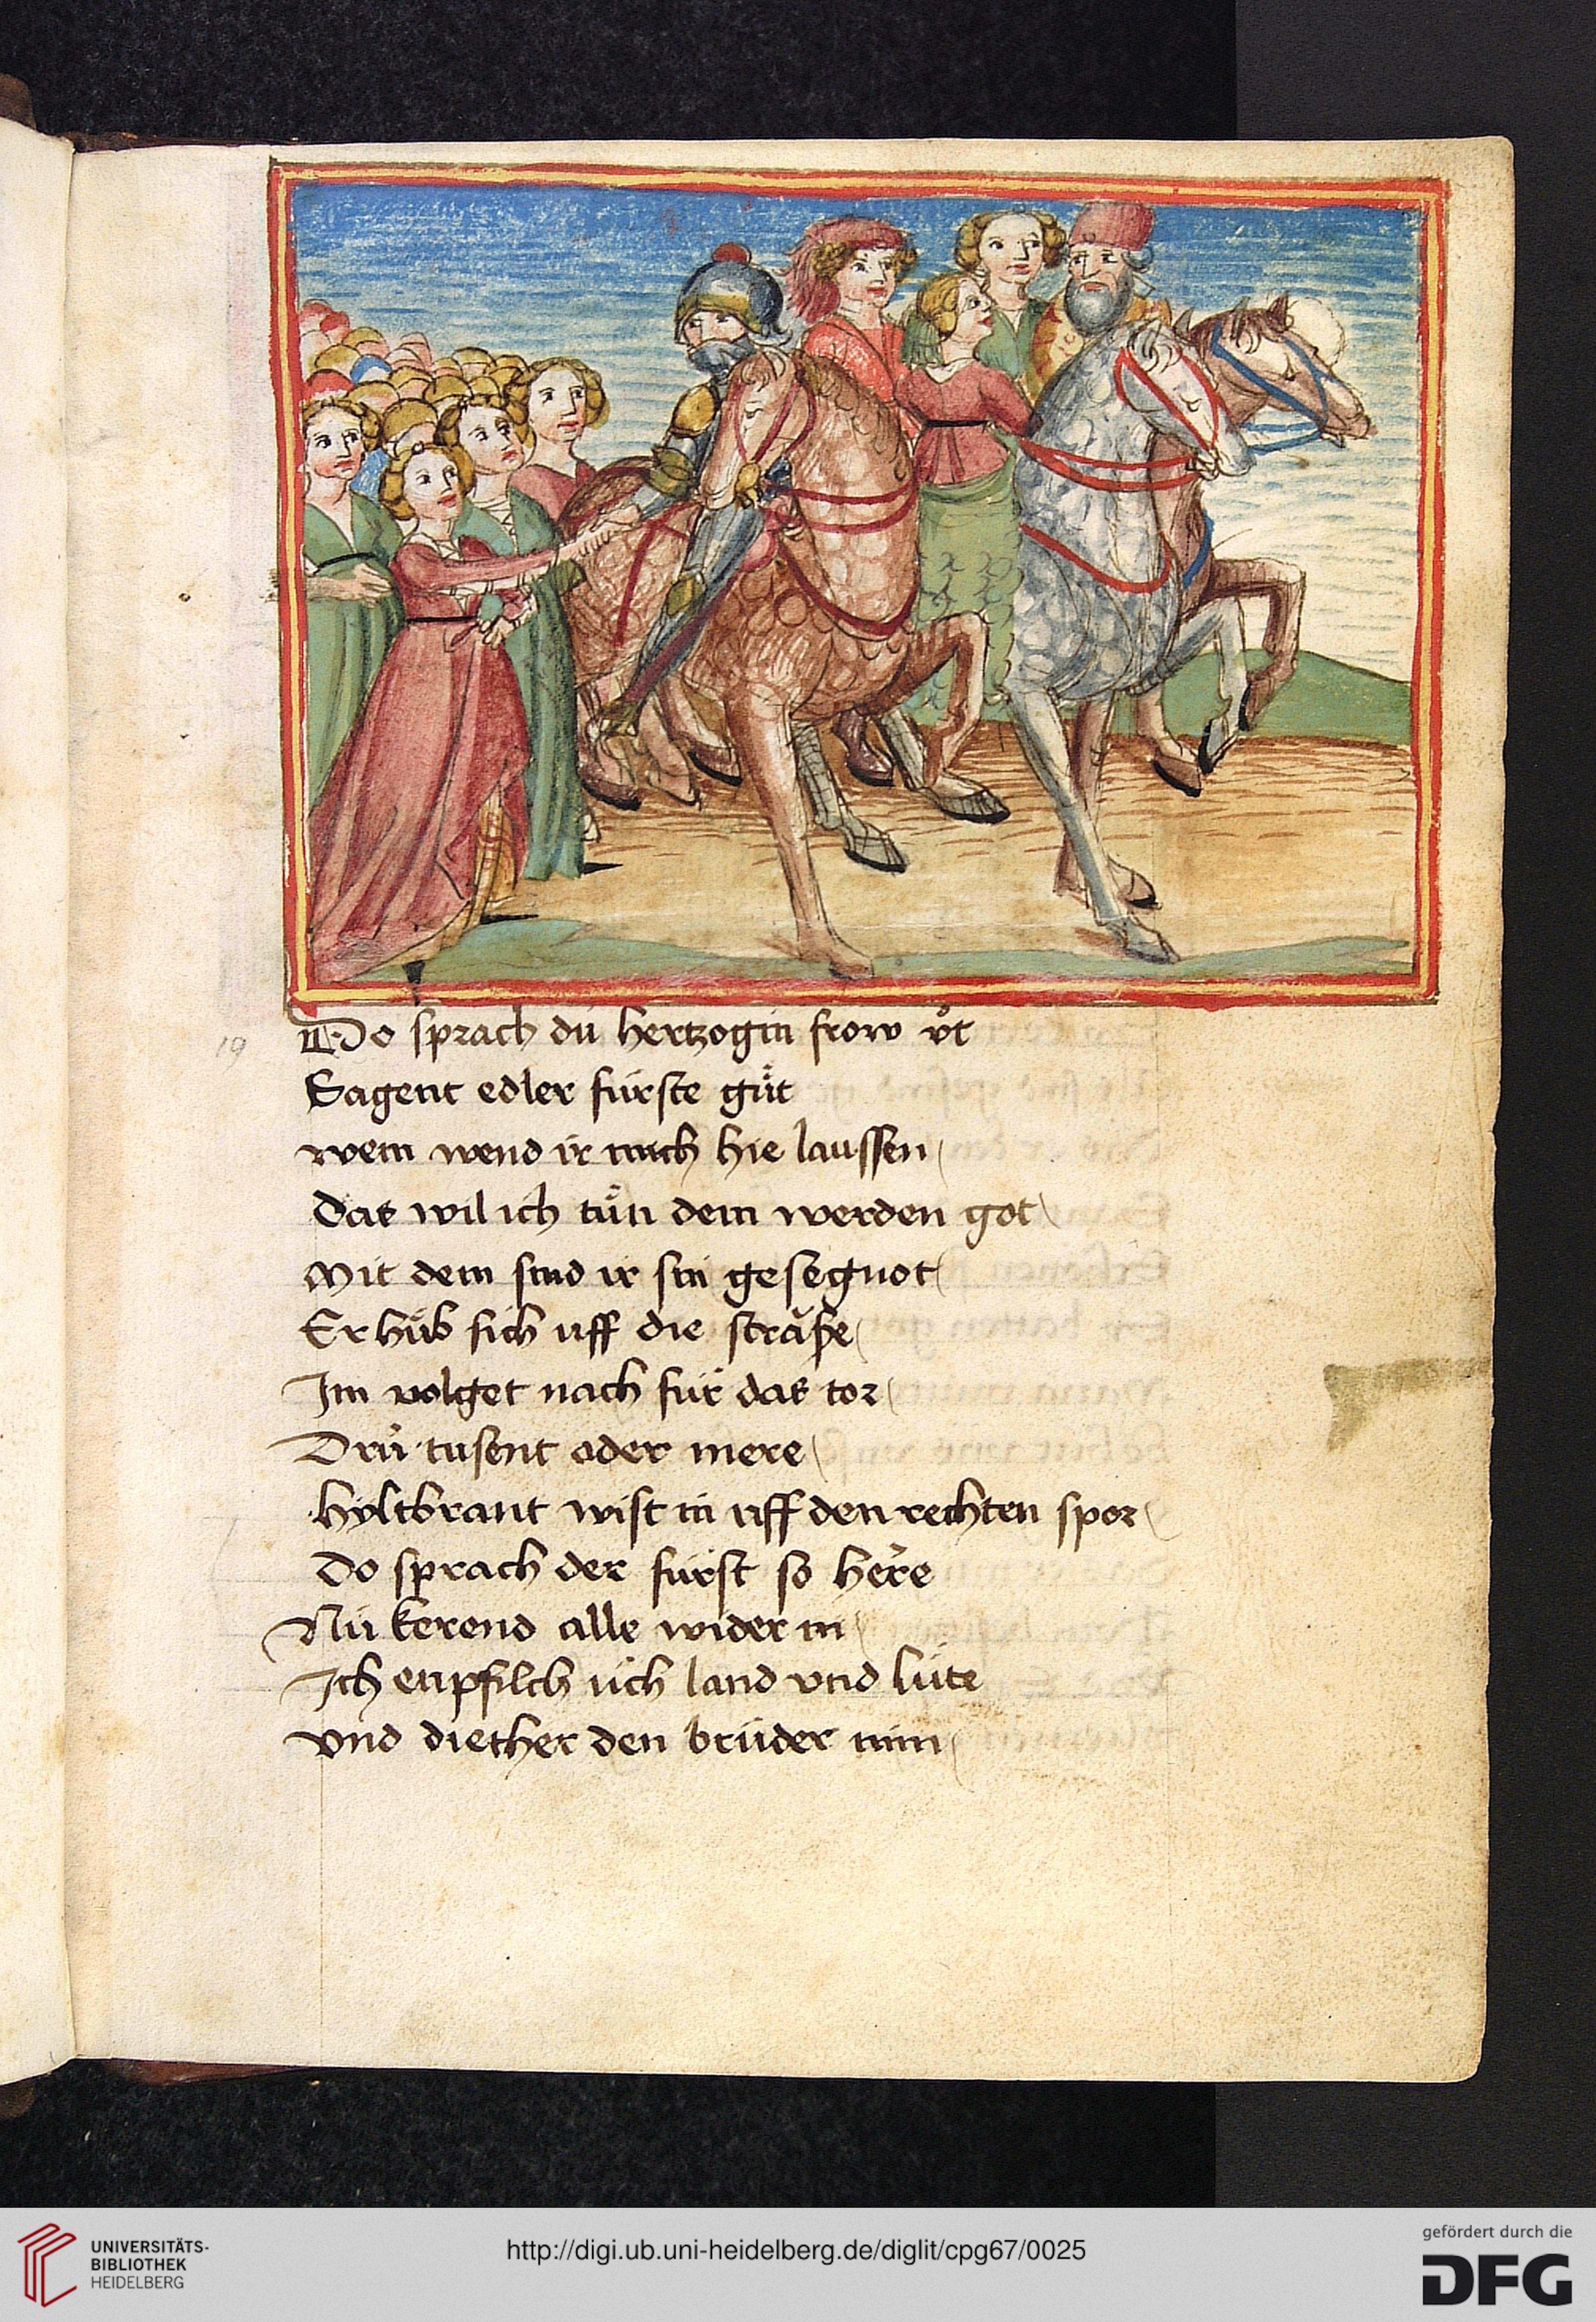 Do sprach dü hertzogin frow vͦt
19
Sagent edler fürste guͤt
wem wend ir mich hie laussen
Das wil ich tuͤn dem werden got
Mit dem sind ir sin gesegnot
Er huͤb sich uff die strǎße
Im volget nach für das tor
Drü tusent oder mere
hyltbrant wist in uff den rechten spor
Do sprach der fürst so here
Nü kerend alle wider in
Ich enpfilch üch land vnd lüte
vnd diether den brüder min
UNIVERSITÄTS-
BIBLIOTHEK
HEIDELBERG
http://digi.ub.uni-heidelberg.de/diglit/cpg67/0025
gefördert durch die
DFG